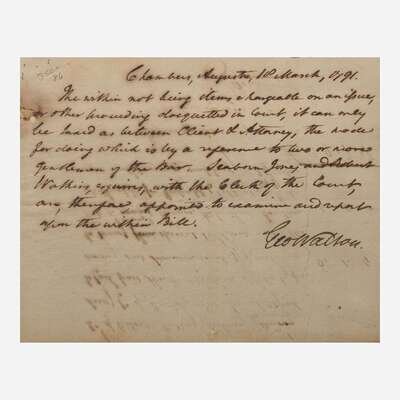 Chambers, Augusta, 18 March, 1791.
The within not being items chargeable on an issue,
or other proceeding docquetted in Court, it can only
be taxed as between Client & Attorney, the mode
for doing which is by a reference to two or more
gentlemen of the Bar. Seaborn Jones, and Robert
Watkins, esquires, with the Clerk of the Court
are, therefore appointed to examine and report
upon the within Bill.
Geo Walton.